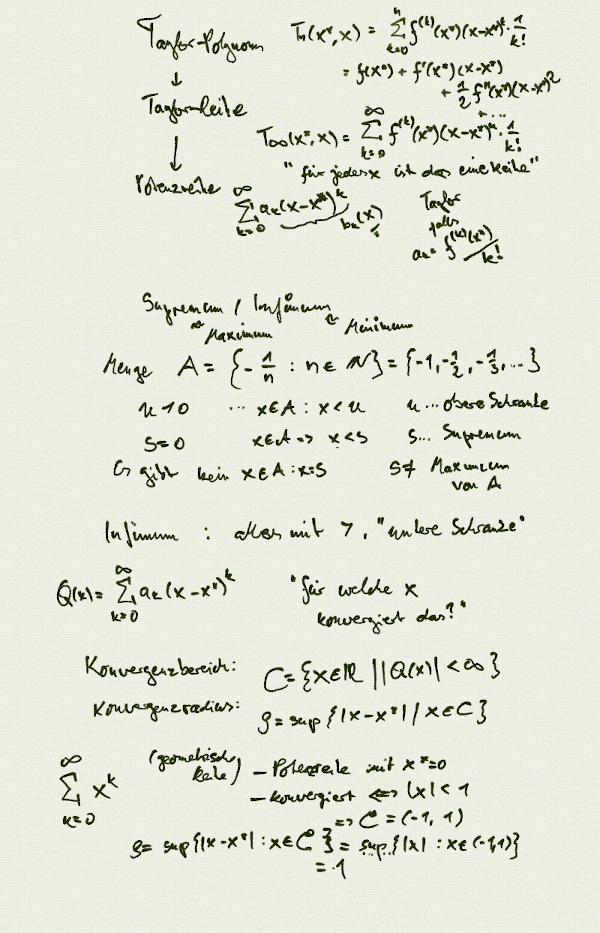 Taylor-Polynom Tn(x*,x) = ∑_{k=0}^{n} f^(k)(x*)(x-x*)^k · 1/k!
= f(x*) + f'(x*)(x-x*)
↓ + 1/2 f''(x*)(x-x*)^2
+ ...
Taylor-Reihe
↓ T∞(x*,x) = ∑_{k=0}^{∞} f^(k)(x*)(x-x*)^k · 1/k!
"für jedes x ist das eine Reihe"
Potenzreihe ∑_{k=0}^{∞} a_k(x-x*)^k
b_k(x)
Taylor
falls
a_k = f^(k)(x*)/k!
Supremum / Infimum
≈ Maximum ≈ Minimum
Menge A = {-1/n : n ∈ N} = {-1, -1/2, -1/3, ...}
u = 10 ... x∈A : x < u u ... obere Schranke
S = 0 x∈A => x < s s... Supremum
Es gibt kein x∈A : x=s s ≠ Maximum
von A
Infimum : alles mit >, "untere Schranke"
Q(x) = ∑_{k=0}^{∞} a_k(x-x*)^k "für welche x
konvergiert das?"
Konvergenzbereich: C = {x∈R | |Q(x)| < ∞}
Konvergenzradius: ρ = sup {|x-x*| | x∈C}
∑_{k=0}^{∞} x^k (geometrische
Reihe) – Potenzreihe mit x*=0
– konvergiert <=> |x| < 1
=> C = (-1, 1)
ρ = sup{|x-x*| : x∈C} = sup{|x| : x∈(-1,1)}
= 1